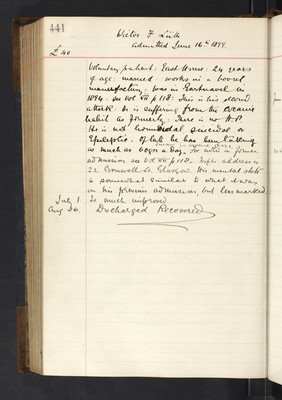 441
Victor F
admitted June 16th 1899.
£40
Voluntary patient: East House: 24 years
of age: married: works in a
manufactory: was in Gartnavel in
1894. see Vol VII p 118: This is his second
attack: He is suffering from the Cocaine
habit as formerly: There is no H.P.
He is not homicidal suicidal or
Epileptic. Of late he has been taking
as much as 60grs a day. As noted in former
admission see Vol VII p 118. wife's address is
22 Cromwell St. Glasgow. His mental state
is somewhat similar to what it was
on his previous admission but less marked
July 1. Is much improved
Aug 26. Discharged Recovered